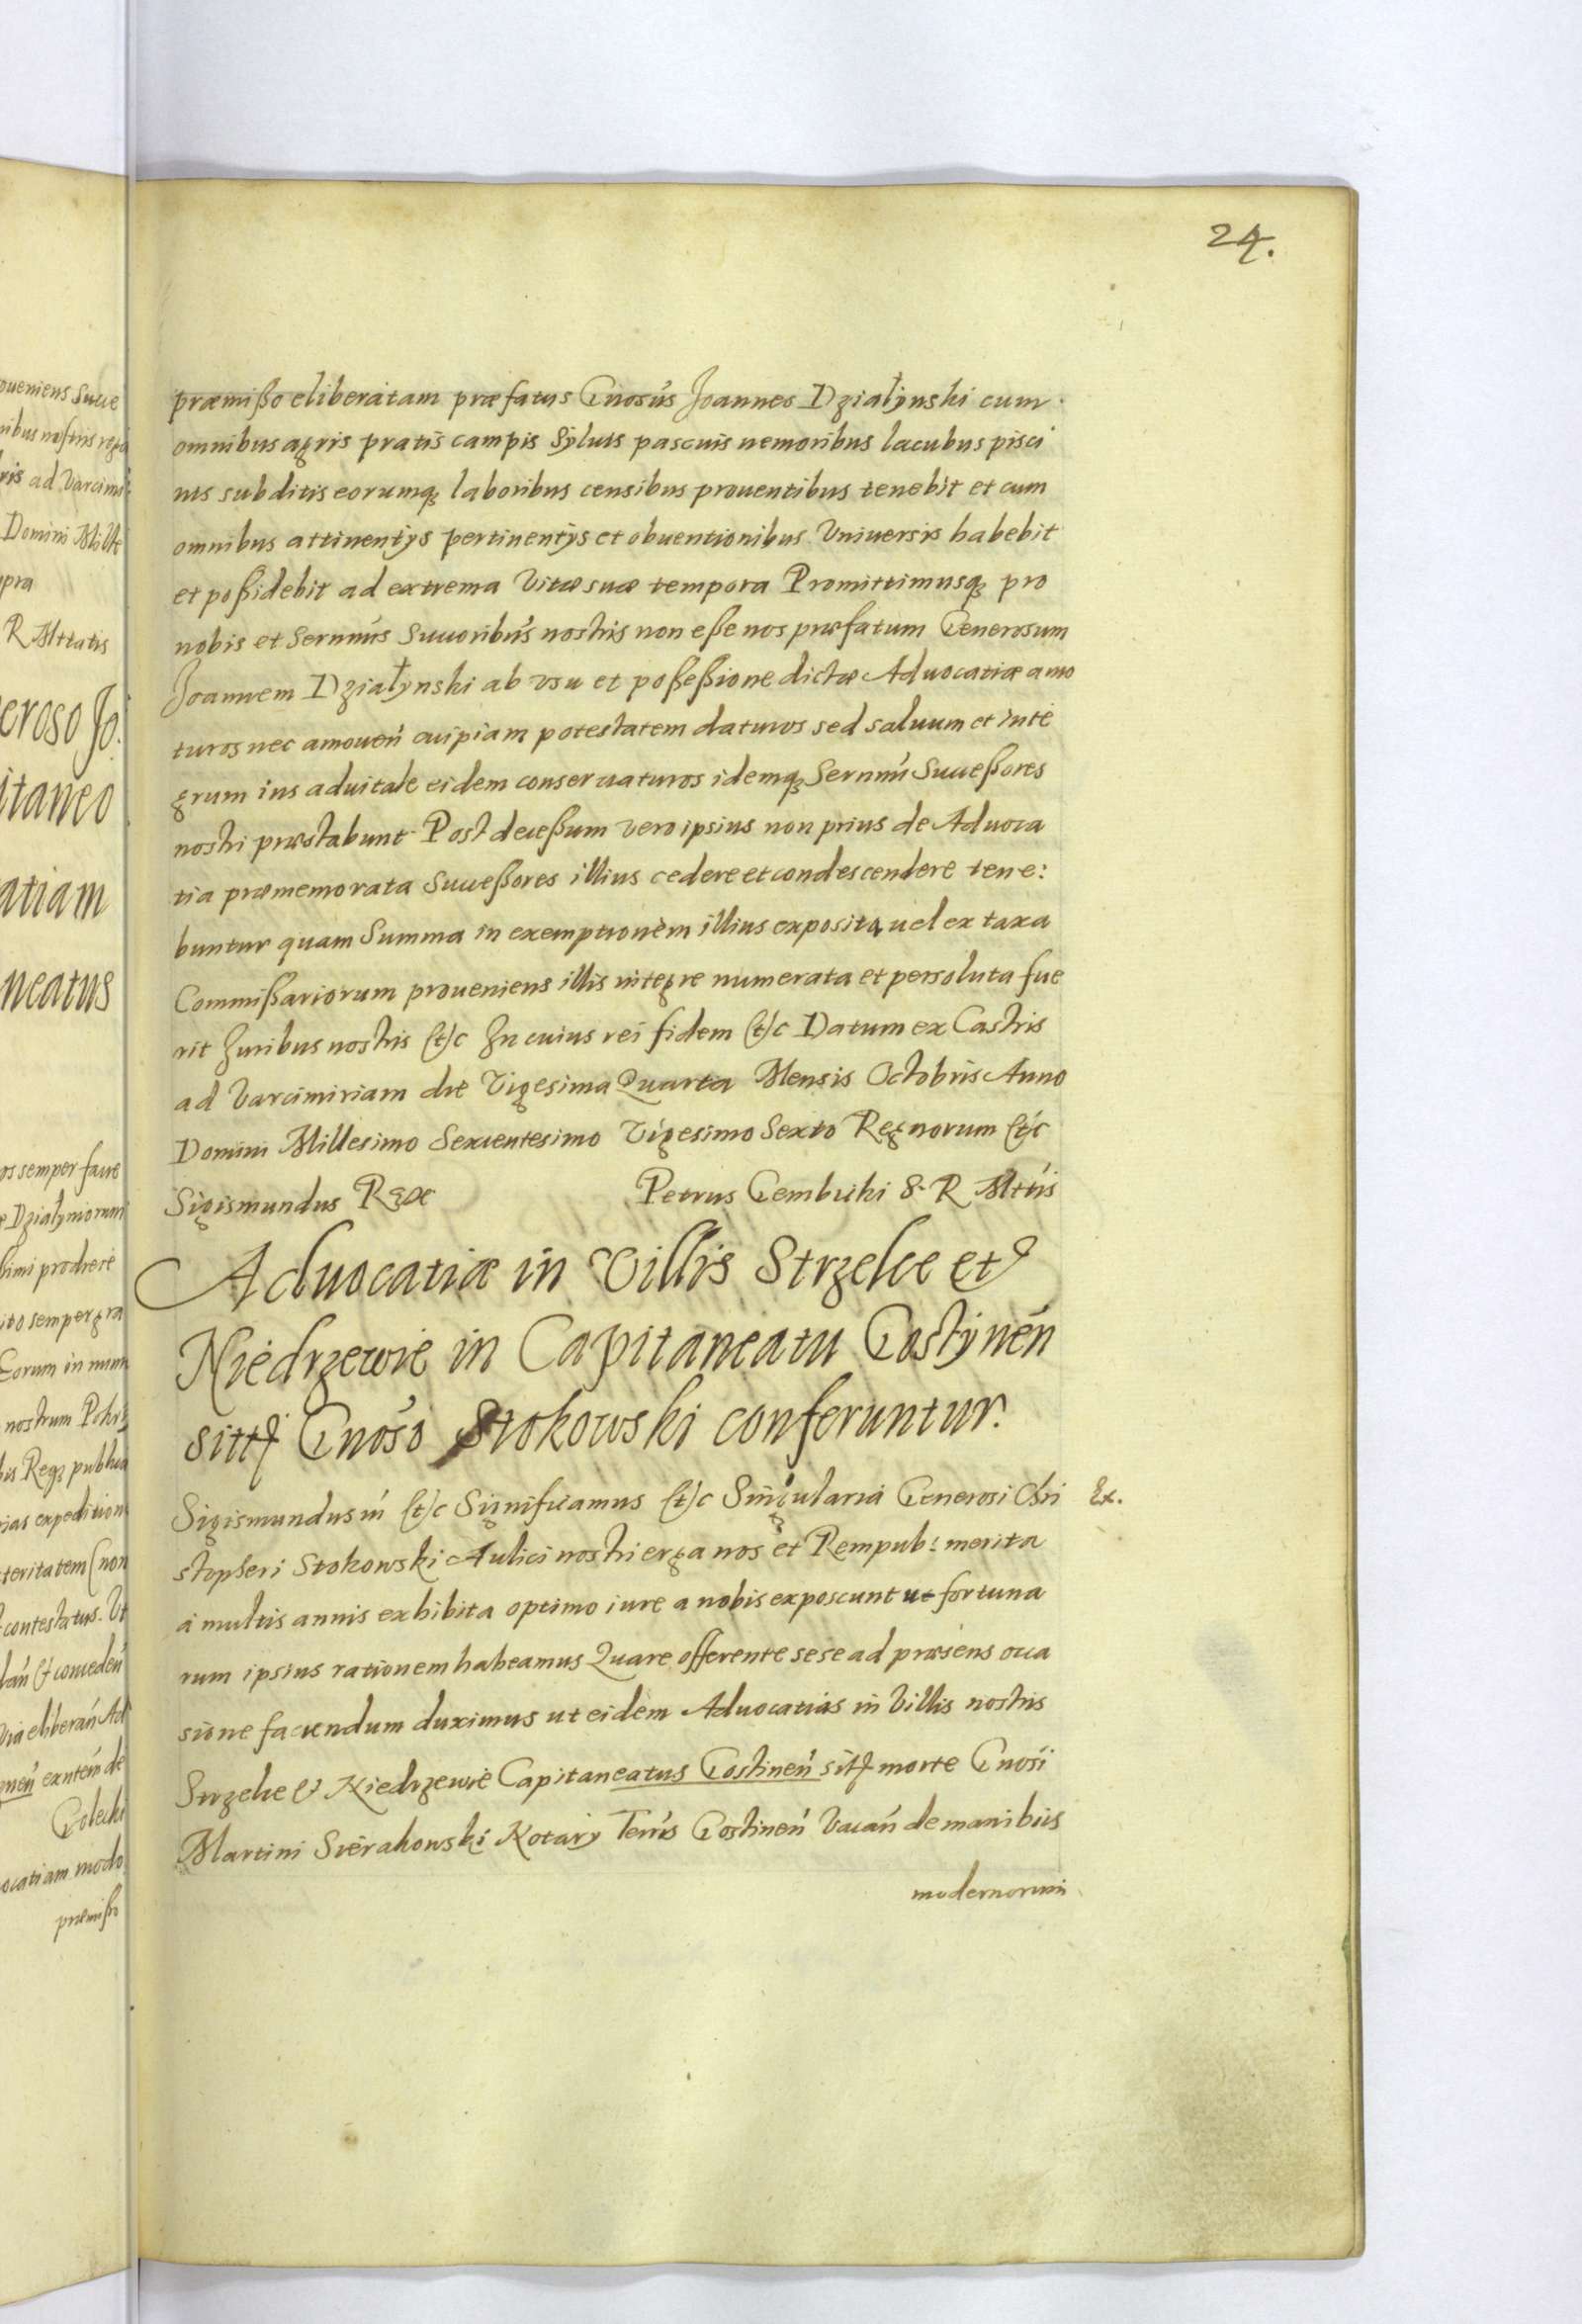 24.
præmißo eliberatam præfatus Gnosús Joannes Działynski cum
omnibus agris pratis campis Syluis pascuis nemoribus lacubus pisci
nis subditis eorumq₃ laboribus censibus prouentibus tenebit et cum
omnibus attinentÿs pertinentÿs et obuentionibus Vniuersis habebit
et poßidebit ad extrema Vitæ suæ tempora Promittimusq₃ pro
nobis et Sernmús Succoribús nostris non eße nos præfatum Generosum
Joannem Działynski ab vsu et poßeßione dictæ Aduocatiæ amo
turos nec amouen cuipiam potestatem daturos sed saluum et inte
grum ius aduitale eidem conseruaturos idemq₃ Sernmú Succeßores
nostri præstabunt Post deceßum vero ipsius non prius de Aduoca
tia præmemorata Succeßores illius cedere et condescendere tene:
buntur quam Summa in exemptionem illius exposita uel ex taxa
Commißariorum proueniens illis integre numerata et persoluta fue
rit Juribus nostris (et)c In cuius rei fidem (et)c Datum ex Castris
ad Varcimiriam die Vigesima Quarta Mensis Octobris Anno
Domini Millesimo Sexcentesimo Vigesimo Sexto Regnorum (et)c
Sigismundus Rex Petrus Gembicki S. R Mttís
Aduocatiæ in Villis Strzelce et
Niedrzewie in Capitaneatu Gostynén
sitt Gnóso Stokowski conferuntur.
Sigismundus (et)c Significamus (et)c Singularia Generosi Chri Ex.
stopheri Stokowski Aulici nostri erga nos et Rempub: merita
á multis annis exhibita optimo iure a nobis exposcunt ut fortuna
rum ipsius rationem habeamus Quare offerente sese ad præsens occa
sione faciendum duximus ut eidem Aduocatias in Villis nostris
Strzelce & Niedrzewie Capitaneatus Gostinen sitt morte Gnosi
Martini Sierakowski Notarÿ Terrís Gostinen Vacan de manibus
modernorum